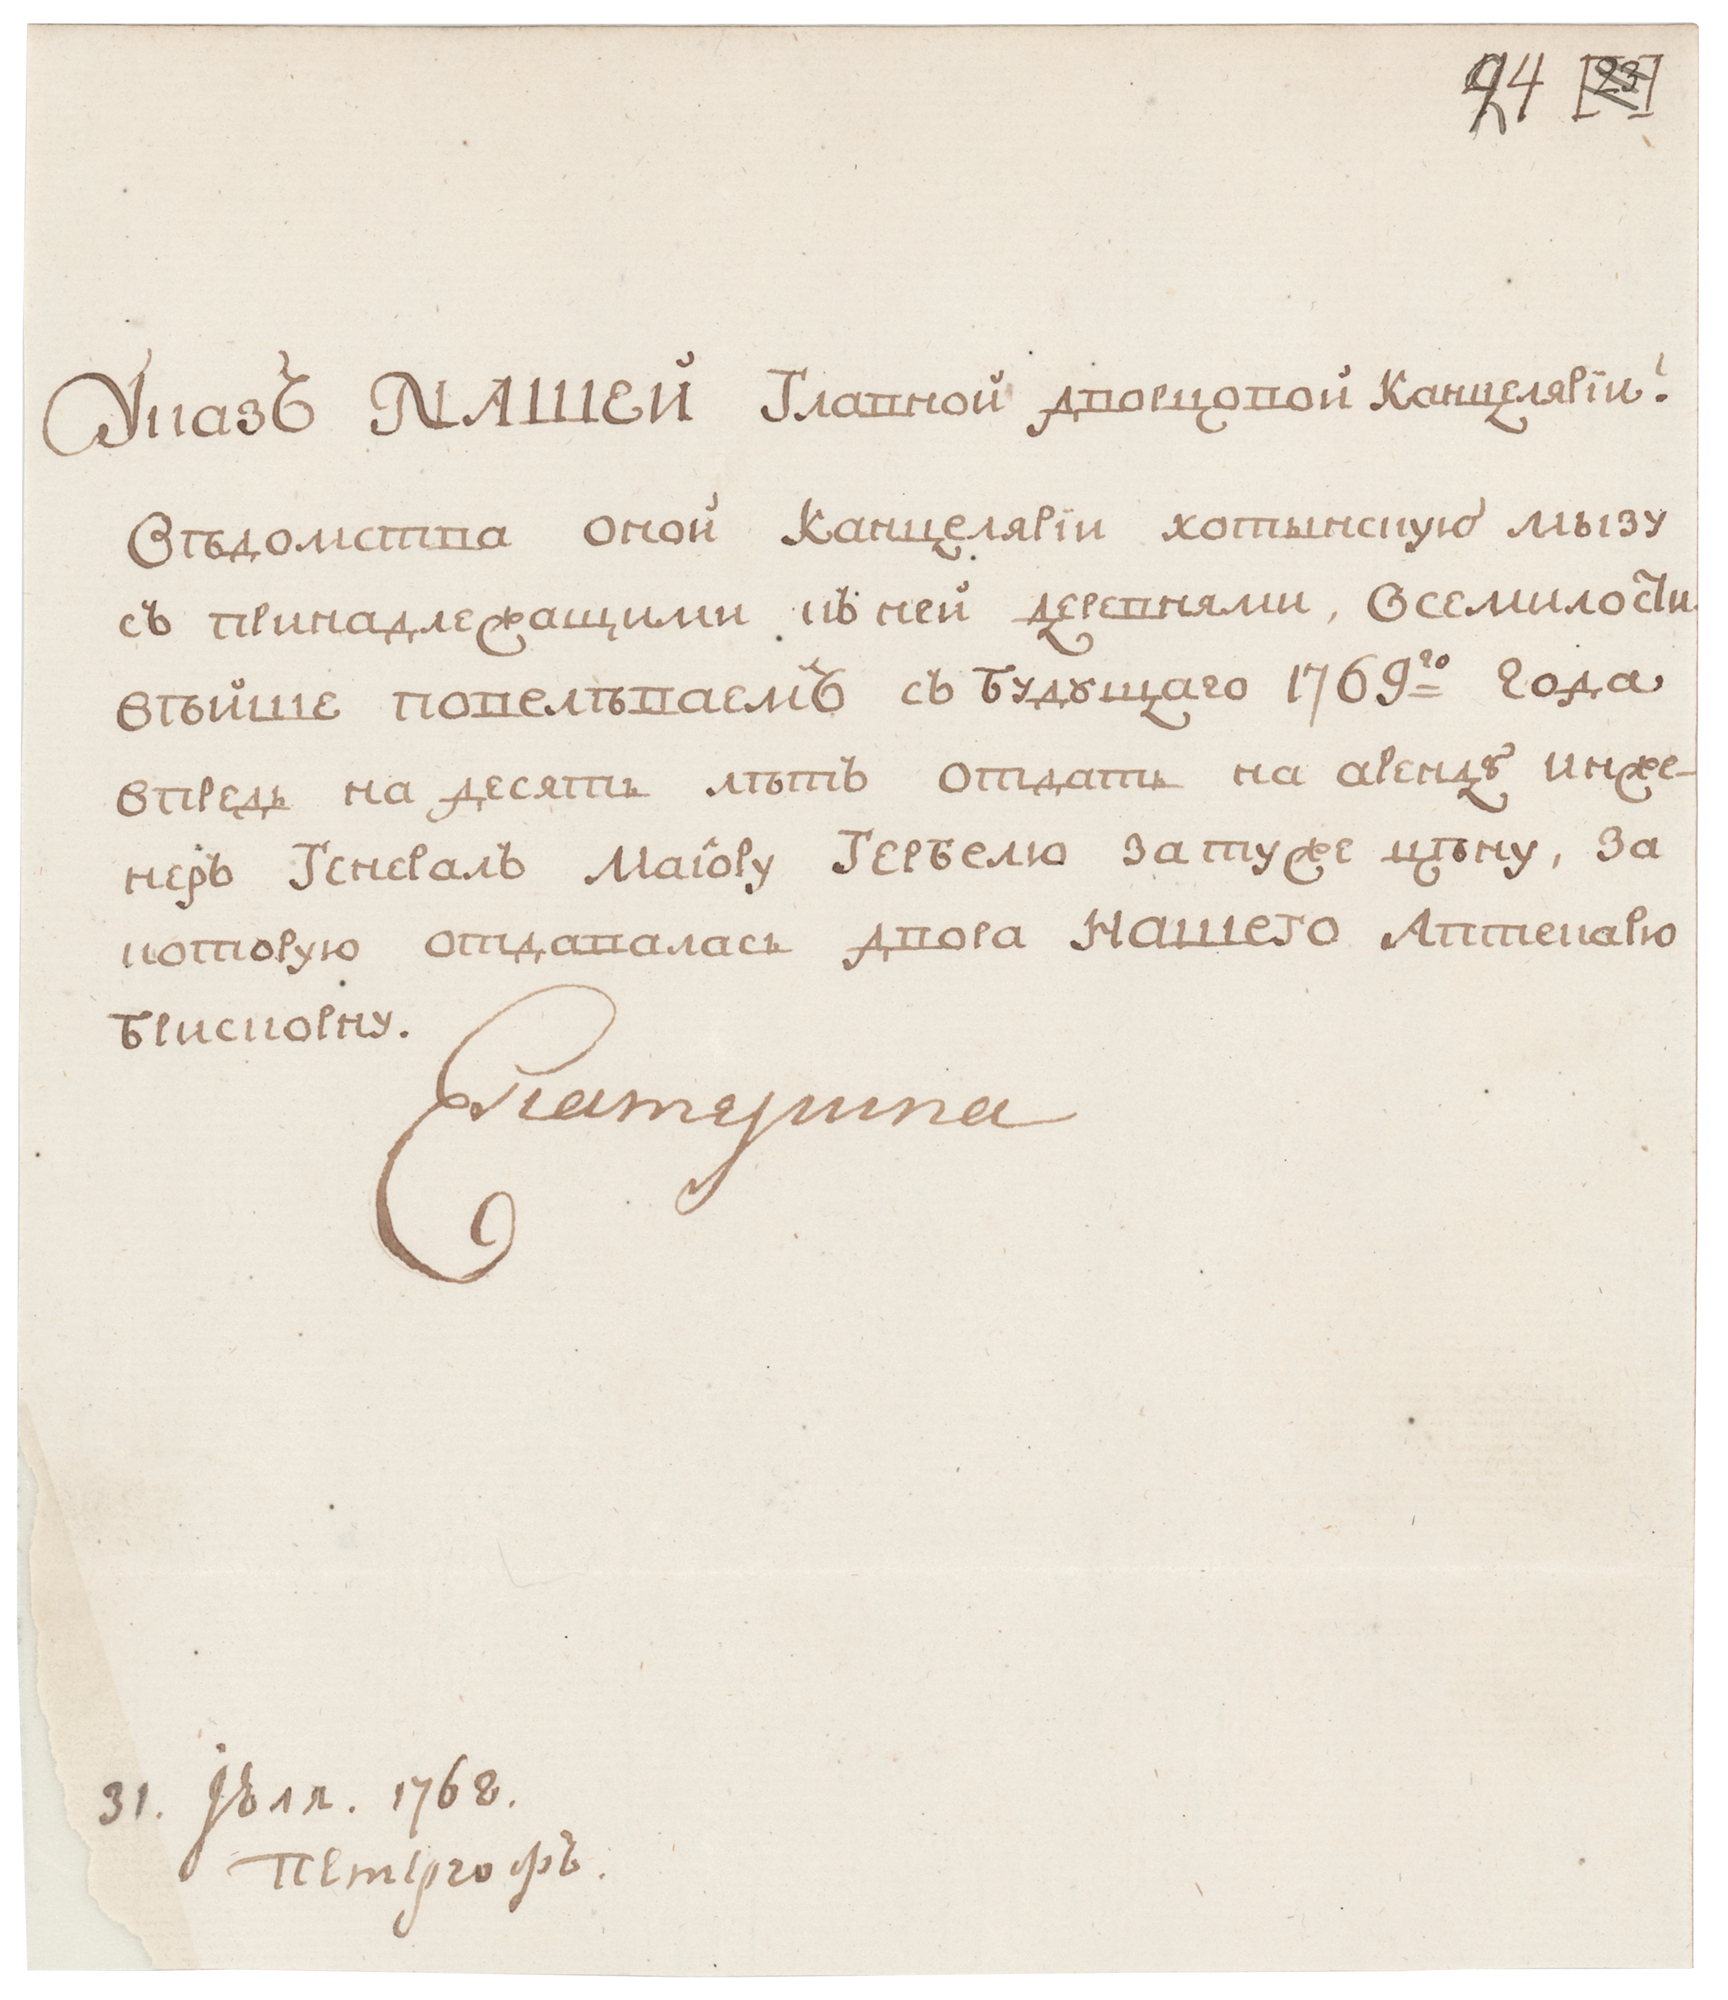 24 [23]
Указъ НАШЕЙ Главной дворцовой Канцелярїи.
Вѣдомства оной Канцелярїи хотынскую мызу
съ принадлежащими къ ней деревнями, Всемилости-
вѣйше повелѣваемъ съ будущаго 1769го года
впредь на десять лѣтъ отдать на аренду инже-
неръ Генералъ Маїору Гербелю за туже цѣну, за
которую отдавалась двора Нашего Аптекарю
брискорну.
Екатерина
31. Jюля. 1768.
Петергофъ.